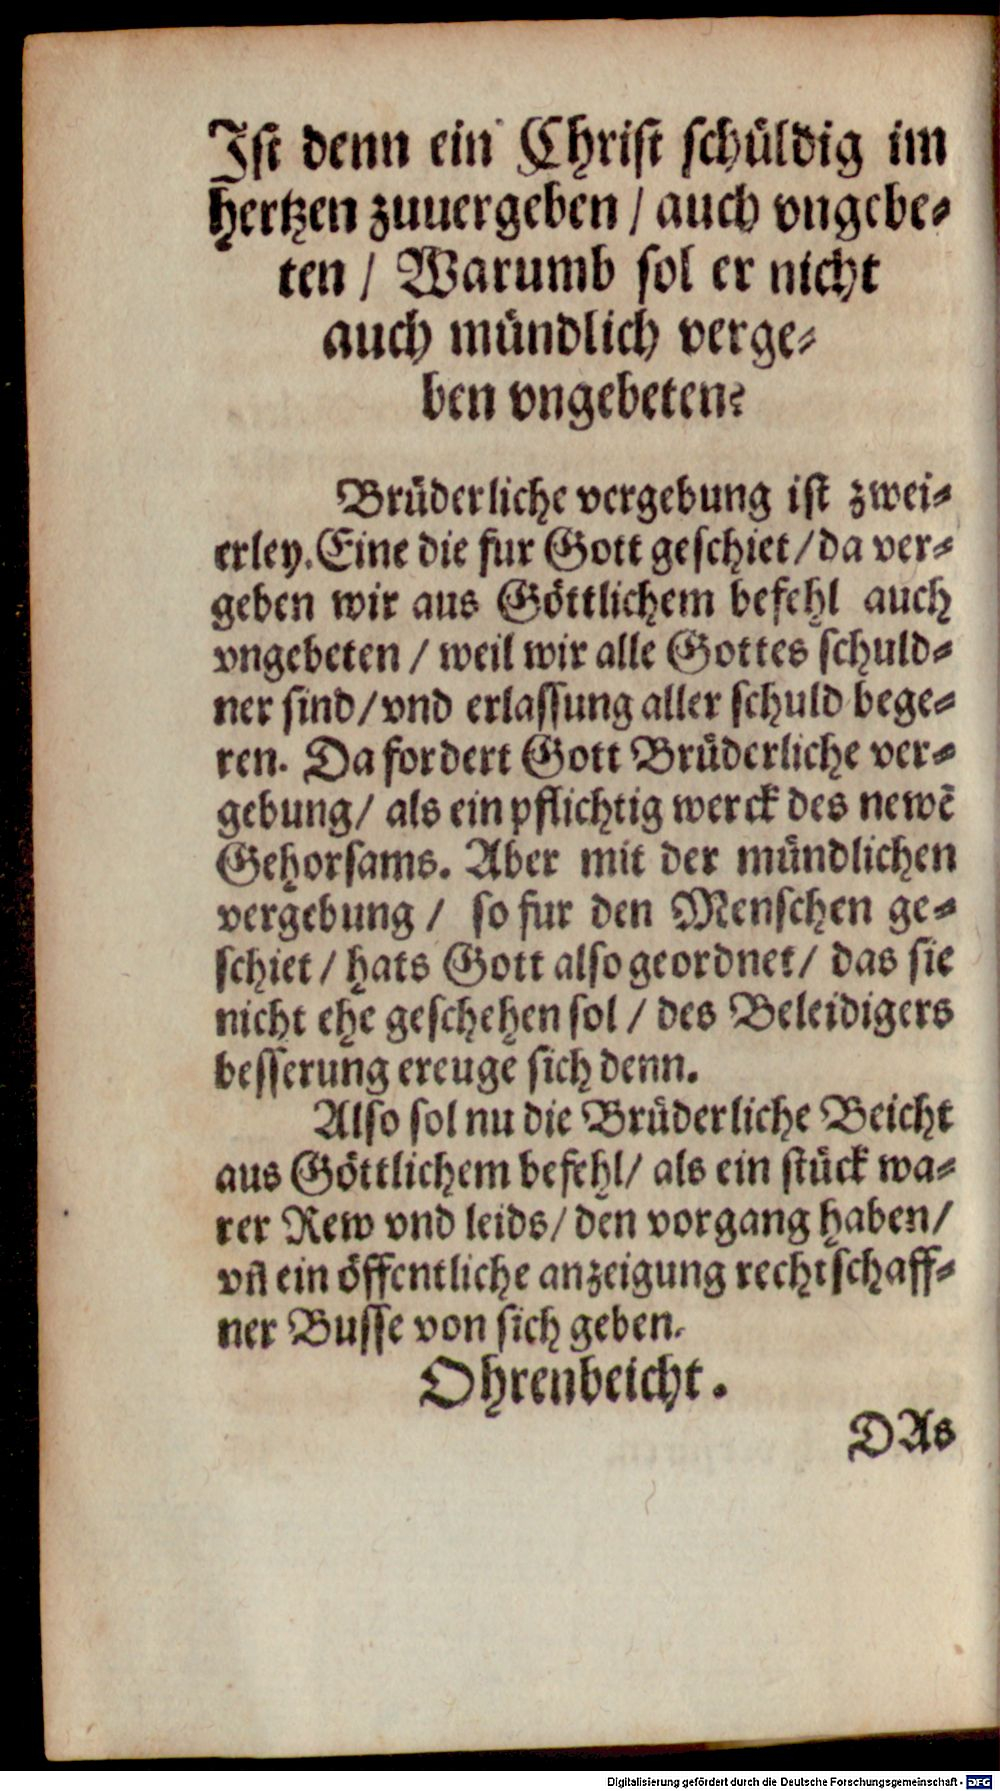 Ist denn ein Christ schüldig im
hertzen zuuergeben / auch vngebe-
ten / Warumb sol er nicht
auch mündlich verge-
ben vngebeten?
Brüderliche vergebung ist zwei-
erley. Eine die fur Gott geschiet / da ver-
geben wir aus Göttlichem befehl auch
vngebeten / weil wir alle Gottes schuld-
ner sind / vnd erlassung aller schuld bege-
ren. Da fordert Gott Brüderliche ver-
gebung / als ein pflichtig werck des newē
Gehorsams. Aber mit der mündlichen
vergebung / so fur den Menschen ge-
schiet / hats Gott also geordnet / das sie
nicht ehe geschehen sol / des Beleidigers
besserung ereuge sich denn.
Also sol nu die Brüderliche Beicht
aus Göttlichem befehl / als ein stück wa-
rer Rew vnd leids / den vorgang haben /
vñ ein öffentliche anzeigung rechtschaff-
ner Busse von sich geben.
Ohrenbeicht.
DAs
Digitalisierung gefördert durch die Deutsche Forschungsgemeinschaft - DFG